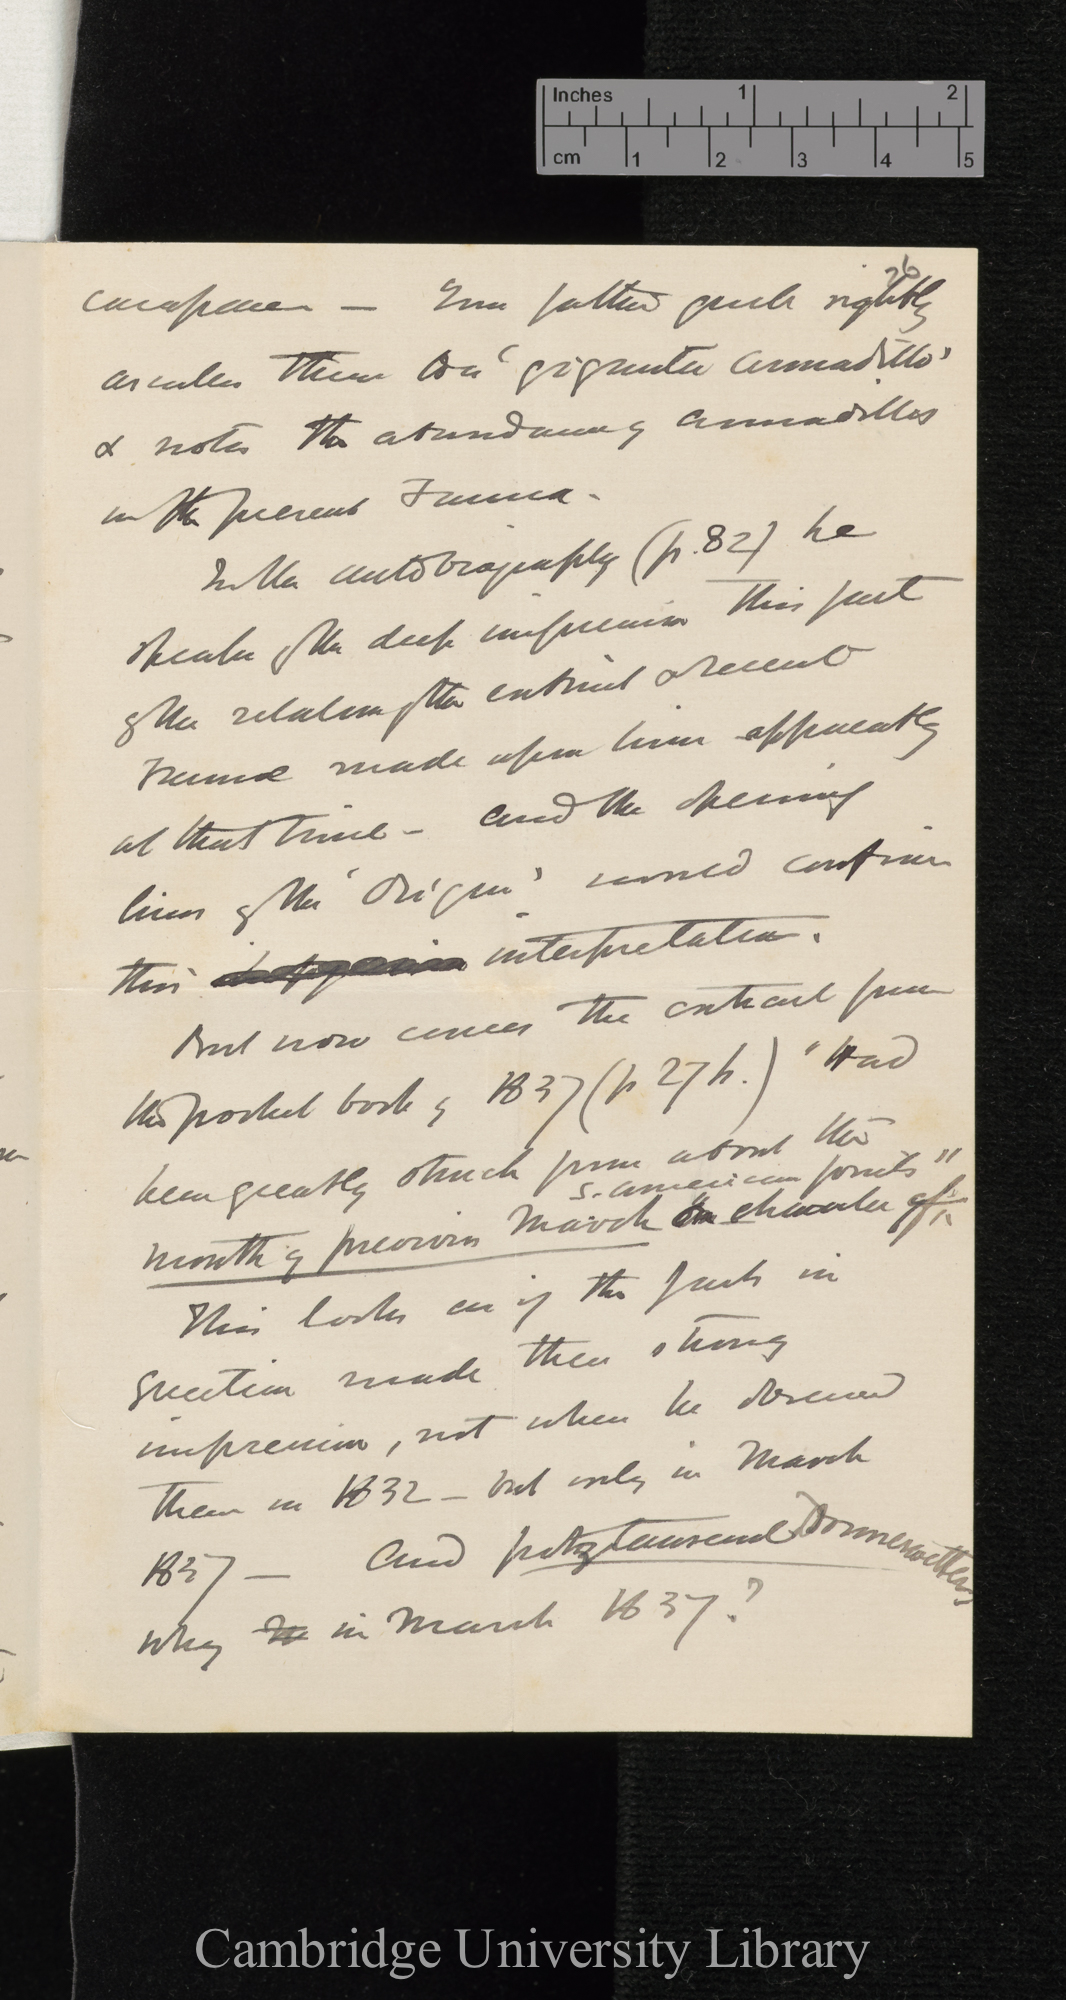 Inches 1 2
cm 1 2 3 4 5
26
carapaces — Your father quite rightly
ascribes them to a 'gigantic armadillo'
& notes the abundance of armadillos
in the present Fauna.
In the autobiography (p. 82) he
speaks of the deep impression this fact
of the relation of the extinct & recent
Faunae made upon him apparently
at that time — and the opening
lines of the 'Origin' would confirm
this interpretation.
But now comes the extract from
the pocket book of 1837 (p 276.) "Had
been greatly struck from about the
month of previous March on character of
S. American fossils"
This looks as if the facts in
question made their strong
impression, not when he observed
them in 1832 — but only in March
1837 — And potztausend Donnerwetter
why in March 1837?
Cambridge University Library